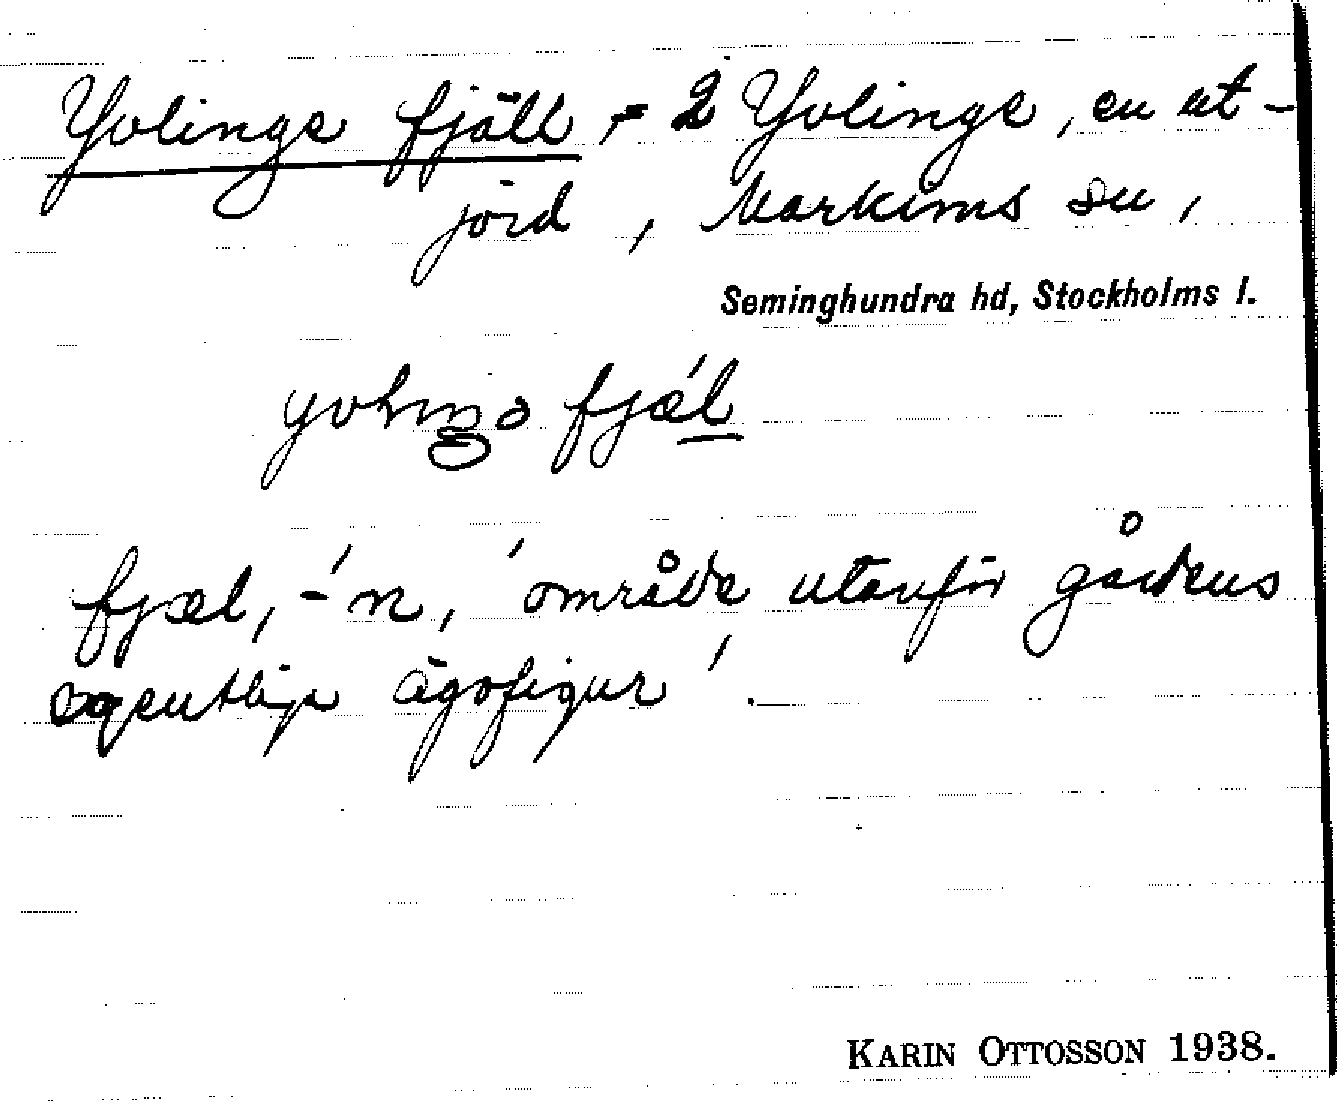 Yvlinge fjäll, = 2 Yvlinge, en ut-
jord, Markims sn,
Seminghundra hd, Stockholms l.
fjäl
fjæl, -´n, 'område utanför gårdens
egentliga ägofigur'.
KARIN OTTOSSON 1938.